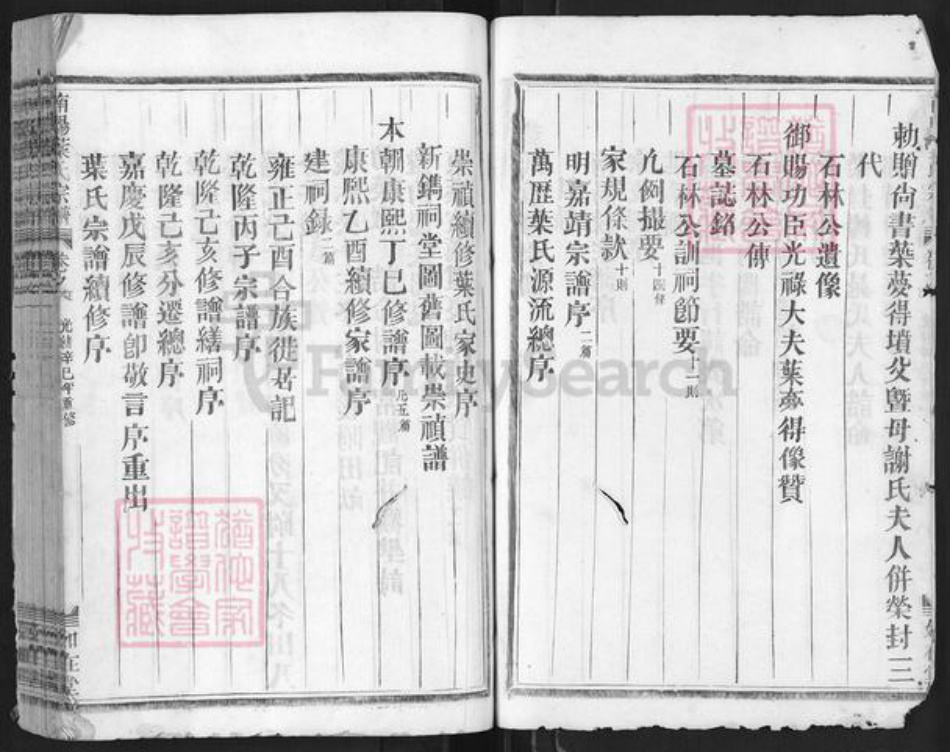 勅贈尚書葉夢得墳父暨母謝氏夫人併榮封三
代
石林公遺像
御賜功臣光祿大夫葉夢得像贊
石林公傳
墓誌銘
石林公訓祠節要十二則
凡例撮要十四條
家規條款十則
明嘉靖宗譜序二篇
萬歷葉氏源流總序
崇禎續修葉氏家史序
新鐫祠堂圖舊圖載崇禎譜
本朝康熙丁巳修譜序凡五篇
康熙乙酉續修家譜序
建祠録二篇
雍正己酉合族徙居記
乾隆丙子宗譜序
乾隆己亥修譜繕祠序
乾隆己亥分遷總序
嘉慶戊辰修譜卽敬言序重出
葉氏宗譜續修序
南陽葉氏宗譜 卷之 光緒辛巳年重修
FamilySearch